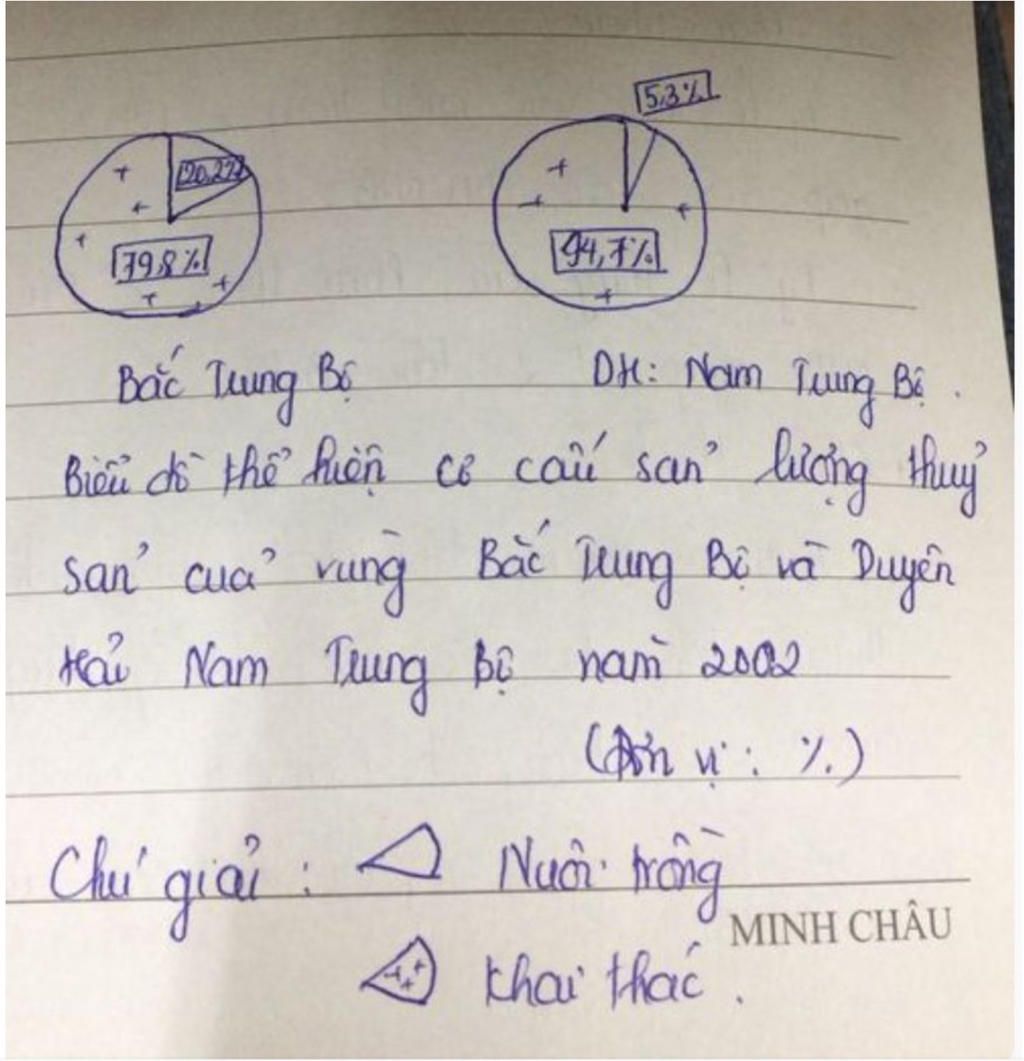 5,3%
20,2%
79,8%
94,7%
Bắc Trung Bộ
DH: Nam Trung Bộ.
Biểu đồ thể hiện cơ cấu sản lượng thuỷ
sản của vùng Bắc Trung Bộ và Duyên
Hải Nam Trung Bộ năm 2002
(Đơn vị: %)
Chú giải: Nuôi trồng
MINH CHÂU
Khai thác.